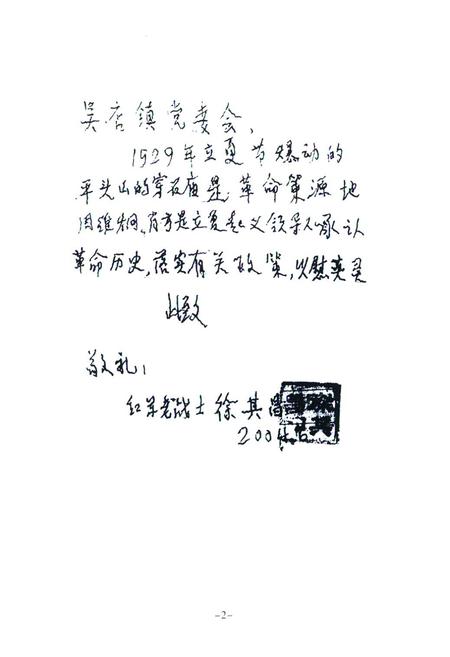 吴店镇党委会、
1929年立夏节爆动的
平头山的穿石庙是革命策源地
周维炯、肖方是立夏起义领导人承认
革命历史,落实有关政策,以慰英灵
此致
敬礼!
红军老战士徐其昌
2004.
-2-